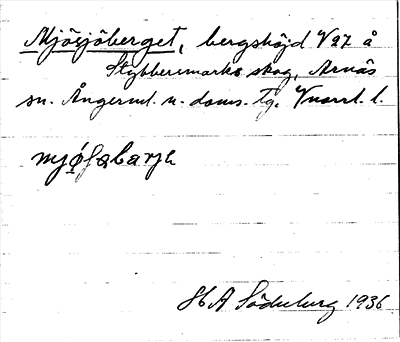 Mjösjöberget, bergshöjd V 27 å
Stybbersmarks skog, Arnäs
sn. Ångerml. n. doms. tg. Vnorrl. l.
H A Söderberg 1936